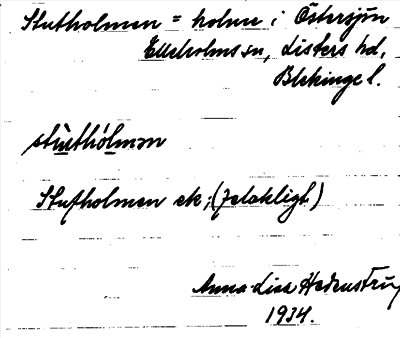 Stutholmen = holme i Östersjön
Elleholms sn, Listers hd,
Blekinge l.
stùthólmən
Stutholmen ek; (felakligt)
Anna-Lisa Hedenstru
1934.